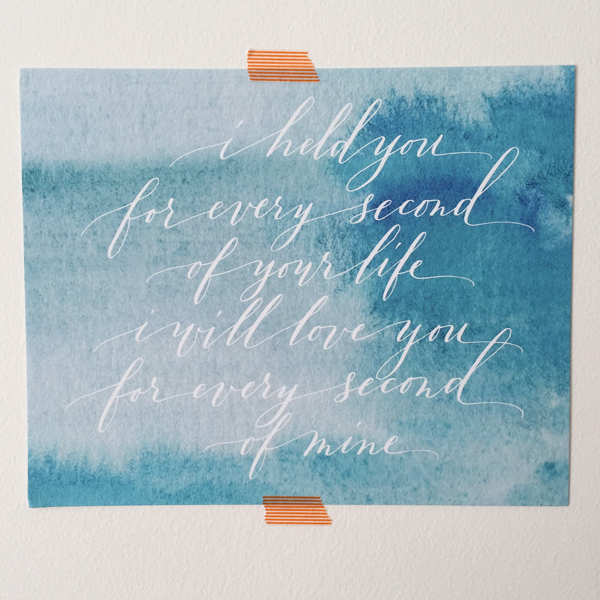 i held you
for every second
of your life
i will love you
for every second
of mine